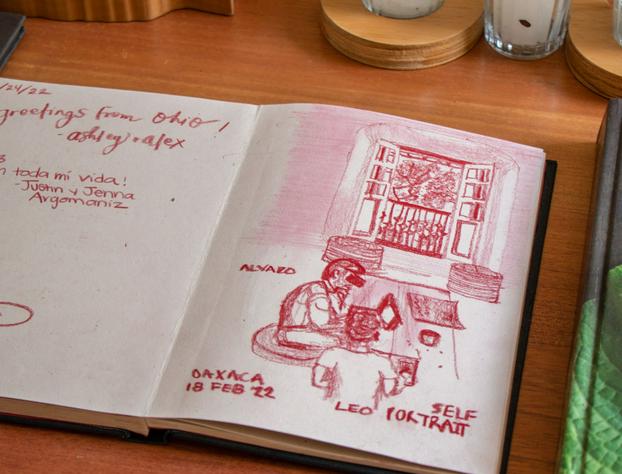 /24/22
greetings from Ohio!
- ashley + alex
n toda mi vida!
- Justin y Jenna
Argomaniz
ALVARO
OAXACA
18 FEB '22
LEO
SELF
PORTRAIT